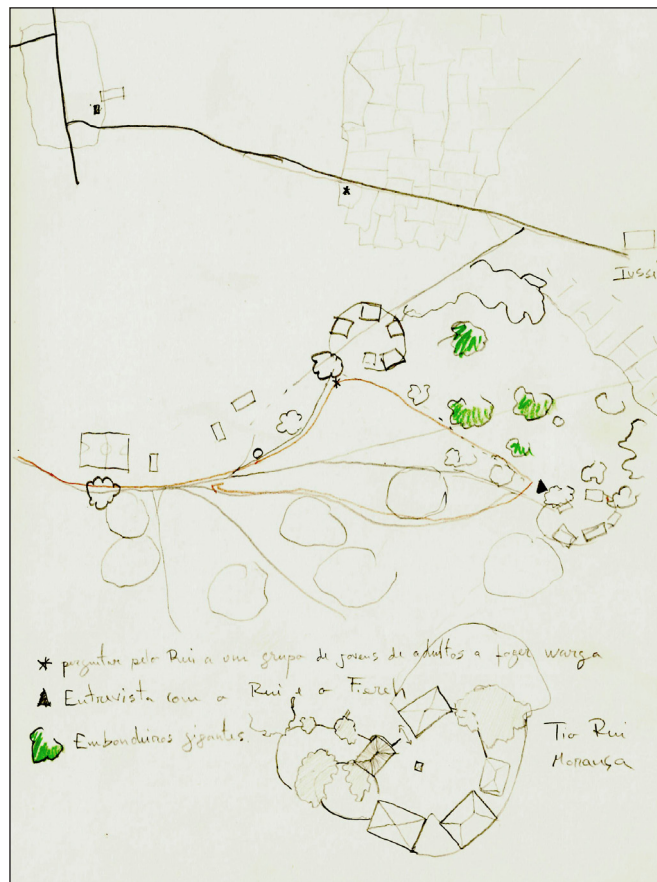 Iussi
* perguntar pelo Rui a um grupo de jovens de adultos a fazer warga
Entrevista com o Rui e o Fiereh
Embondeiros gigantes.
Tio Rui
Morança